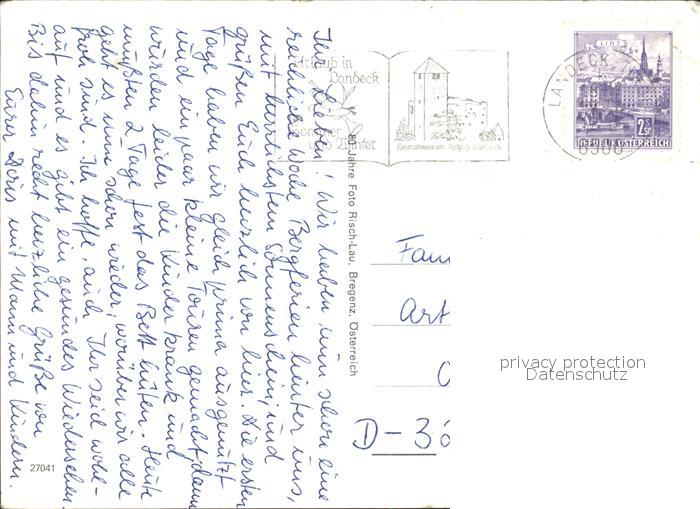 Ihr Lieben! Wir haben nun schon eine
reichliche Woche Bergferien hinter uns,
mit herrlichstem Sonnenschein, und
grüßen Euch herzlich von hier. Die ersten
Tage haben wir gleich prima ausgenützt
und ein paar kleine Touren gemacht, dann
wurden leider die Kinder krank und
mußten 2 Tage fest das Bett hüten. Heute
geht es nun schon wieder, worüber wir alle
froh sind. Ich hoffe auch, Ihr seid wohl-
auf und es gibt ein gesundes Wiedersehen.
Bis dahin recht herzliche Grüße von
Eurer Doris mit Mann und Kindern.
27041
80 Jahre Foto Risch-Lau, Bregenz, Österreich
Urlaub in
Landeck
Sommer
Winter
Heimatmuseum Schloß Landeck
LANDECK, T
6500
LINZ
2 S
REPUBLIK ÖSTERREICH
Fam
Art
D-38
privacy protection
Datenschutz